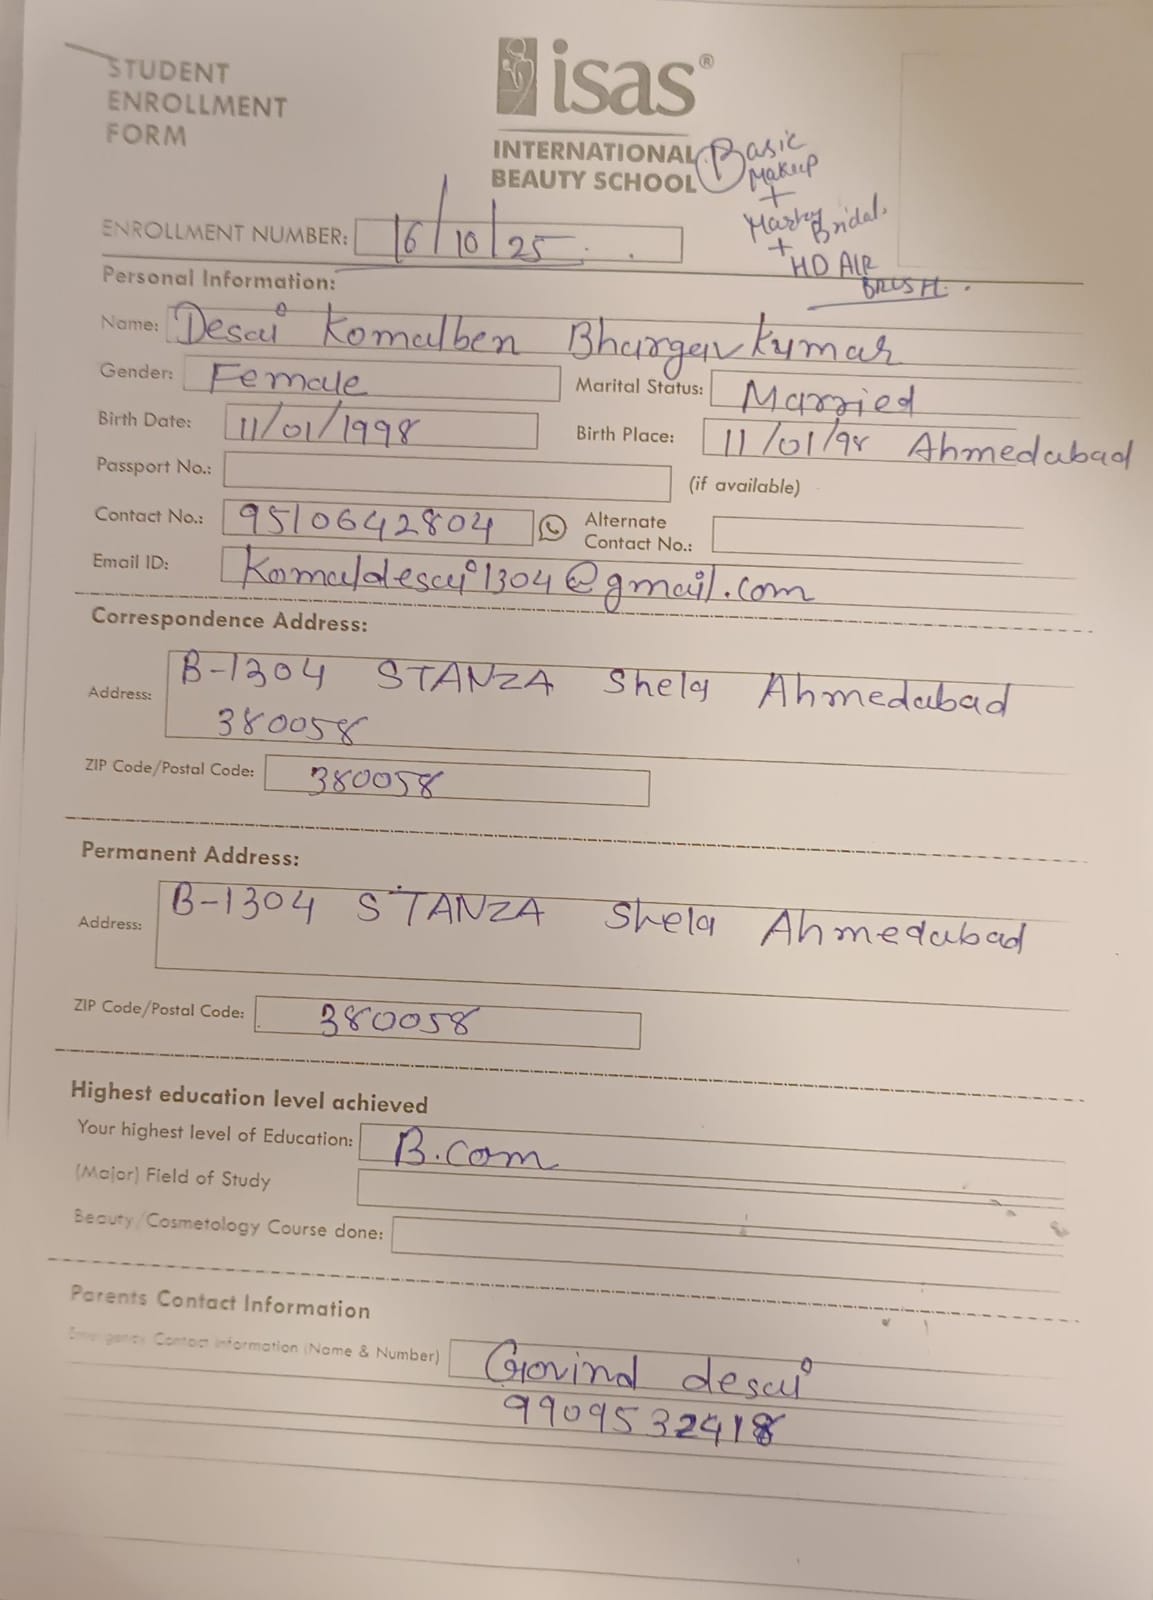 STUDENT
ENROLLMENT
FORM
isas®
INTERNATIONAL
BEAUTY SCHOOL
Basic
Makeup
+
Master Bridal.
+
HD AIR
BRUSH.
ENROLLMENT NUMBER: 16/10/25
Personal Information:
Name: Desai Komalben Bhargavkumar
Gender: Female Marital Status: Married
Birth Date: 11/01/1998 Birth Place: 11/01/98 Ahmedabad
Passport No.: (if available)
Contact No.: 9510642804 Alternate
Contact No.:
Email ID: Komaldesai1304@gmail.com
Correspondence Address:
Address: B-1304 STANZA Shela Ahmedabad
380058
ZIP Code/Postal Code: 380058
Permanent Address:
Address: B-1304 STANZA Shela Ahmedabad
ZIP Code/Postal Code: 380058
Highest education level achieved
Your highest level of Education: B.com
(Major) Field of Study
Beauty/Cosmetology Course done:
Parents Contact Information
Emergency Contact information (Name & Number) Govind desai
9909532418